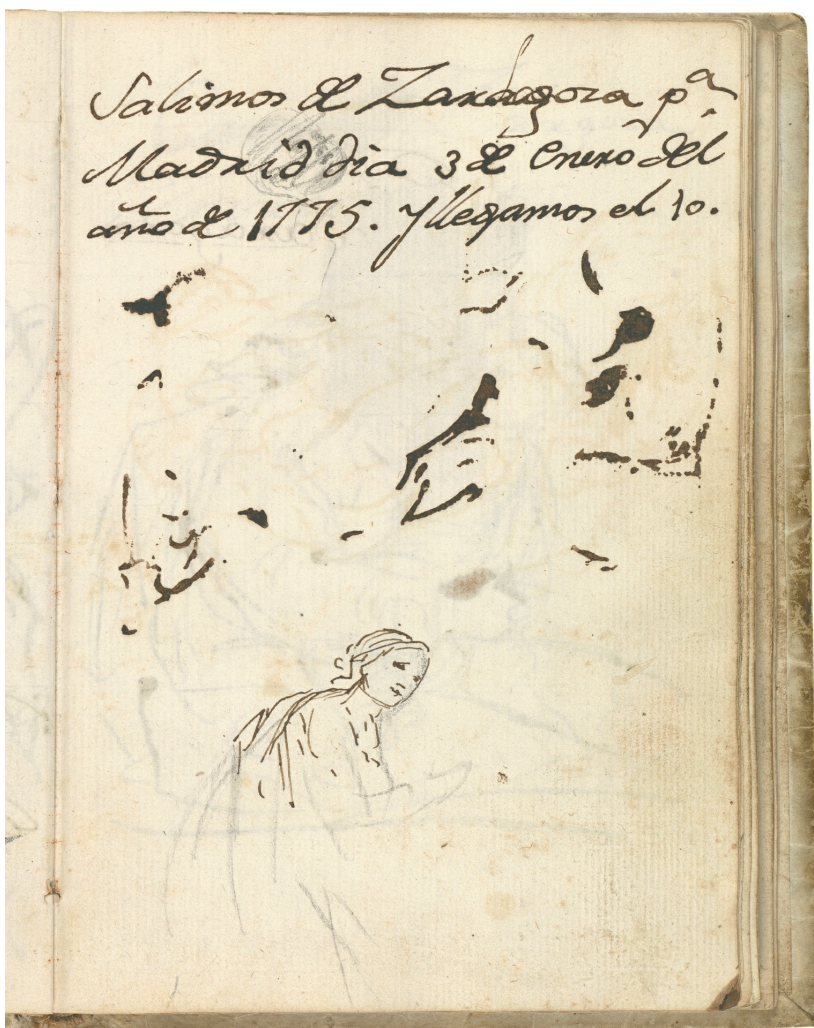 Salimos de Zaragoza pª.
Madrid dia 3 de Enero del
año de 1775. Y llegamos el 10.